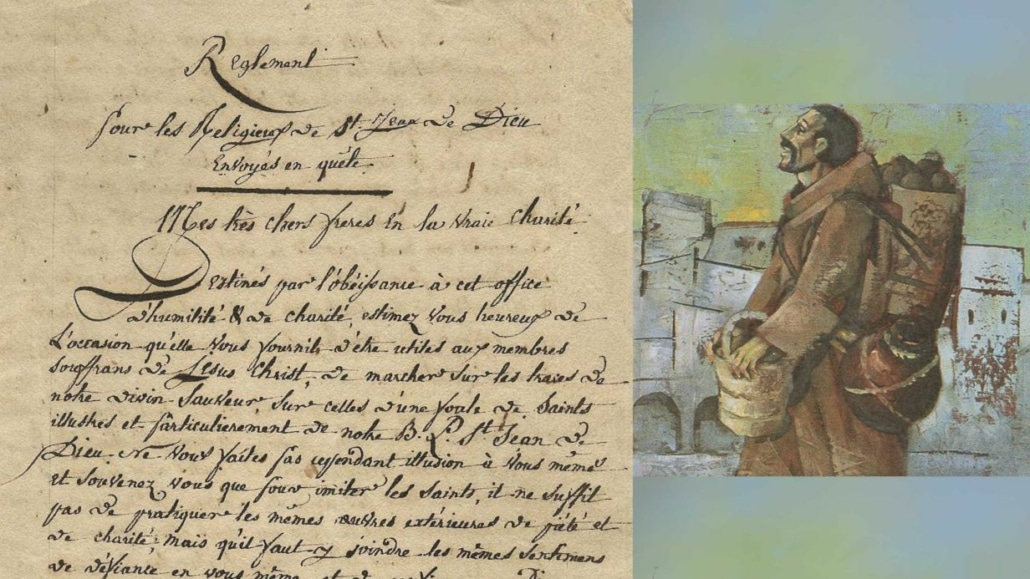 Reglement
pour les Religieux de St Jean de Dieu
Envoyés en quête.
Mes très chers freres en la vraie charité
Destinés par l'obéissance à cet office
d'humilité & de charité, estimez vous heureux de
L'occasion qu'elle vous fournit d'être utiles aux membres
souffrans de Jesus Christ, de marcher sur les traces de
notre divin Sauveur, sur celles d'une foule de Saints
illustres et particulierement de notre B. P. St Jean de
Dieu. Ne vous faites pas cependant illusion à vous même
et souvenez vous que pour imiter les saints, il ne suffit
pas de pratiquer les mêmes œuvres extérieures de piété et
de charité, mais qu'il faut y joindre les mêmes sentimens
de défiance en vous même et de